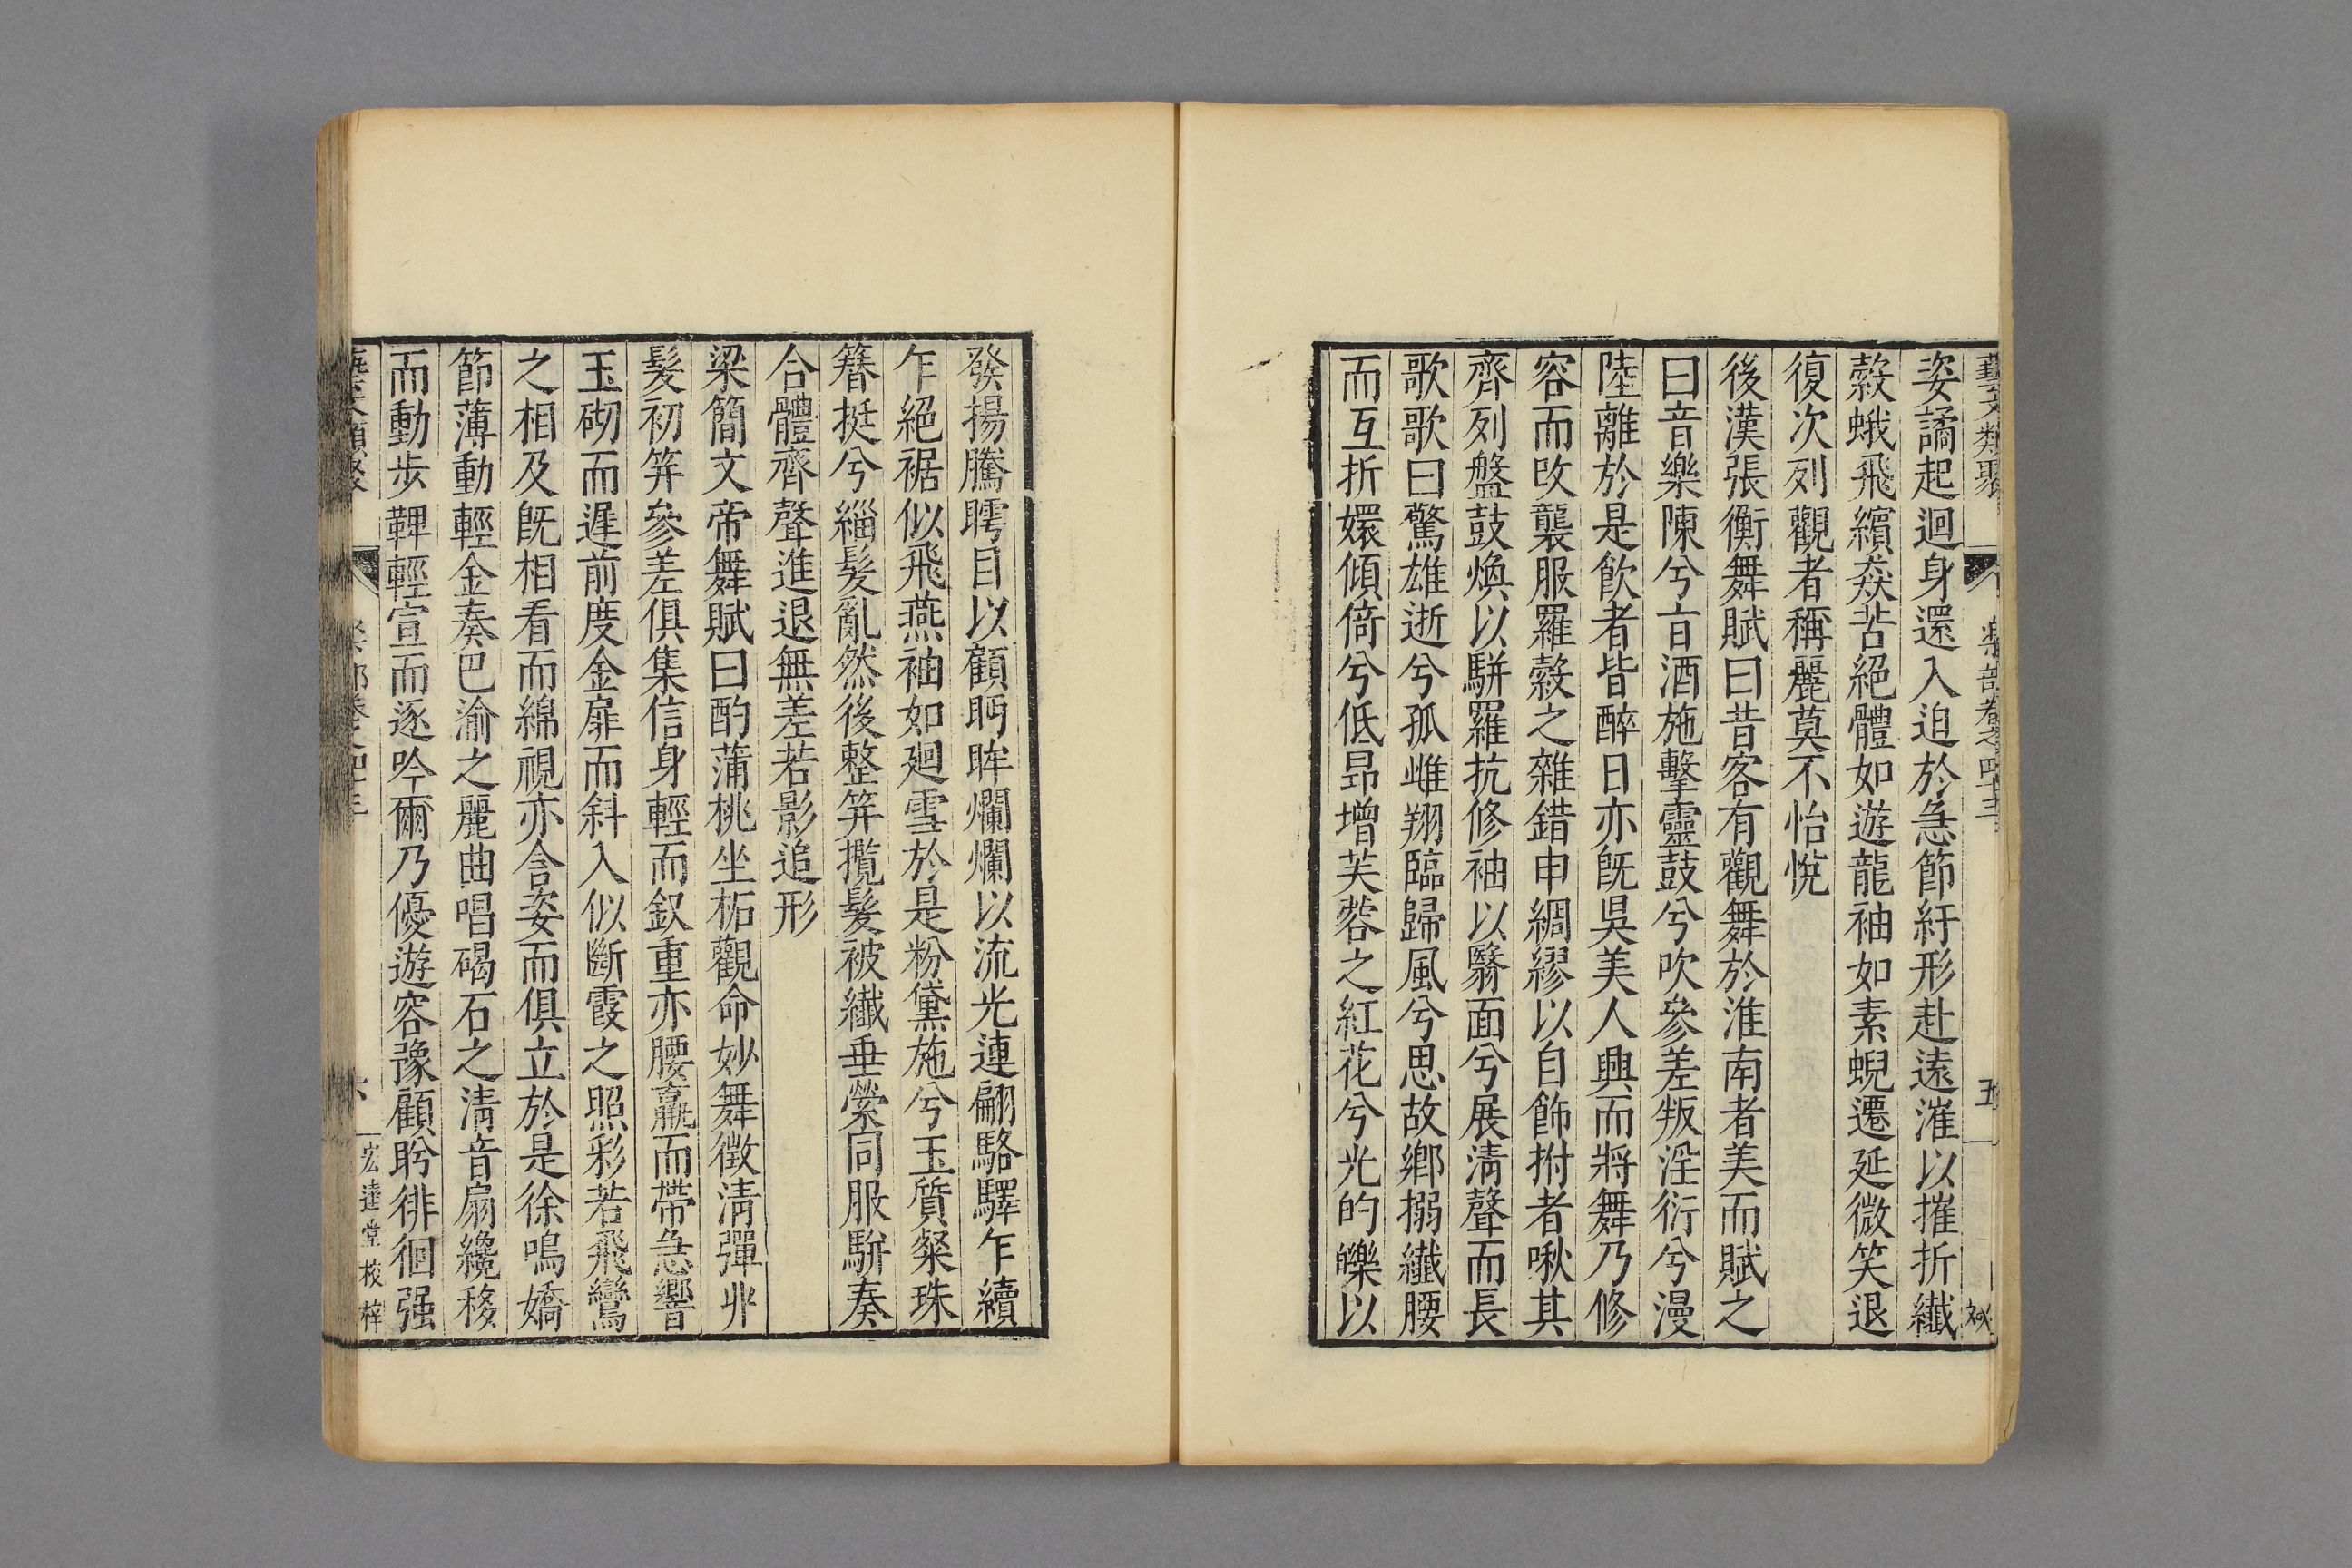 藝文類聚 樂部卷之四十三 五
姿譎起迴身還入迫於急節紆形赴遠漼以摧折纎
縠蛾飛繽猋若絕體如遊龍袖如素蜺遷延微笑退
復次列觀者稱麗莫不怡恱
後漢張衡舞賦曰昔客有觀舞於淮南者美而賦之
曰音樂陳兮㫖酒施擊靈鼓兮吹參差叛淫衍兮漫
陸離於是飲者皆醉日亦旣吳美人興而將舞乃修
容而改襲服羅縠之雜錯申綢繆以自飾拊者啾其
齊列盤鼓煥以駢羅抗修袖以翳面兮展淸聲而長
歌歌曰驚雄逝兮孤雌翔臨歸風兮思故鄉搦纎腰
而互折嬛傾倚兮低昻增芙蓉之紅花兮光的皪以
發揚騰䁨目以顧眄眸爛爛以流光連翩駱驛乍續
乍絕裾似飛燕袖如廻雪於是粉黛施兮玉質粲珠
簪挺兮緇髮亂然後整筓攬髮被纎垂縈同服駢奏
合體齊聲進退無差若影追形
梁簡文帝舞賦曰酌蒲桃坐柘觀命妙舞徵淸彈丱
髮初筓參差俱集信身輕而釵重亦腰羸而帶急響
玉砌而遲前度金扉而斜入似斷霞之照彩若飛鸞
之相及旣相看而綿視亦含姿而俱立於是徐鳴嬌
節薄動輕金奏巴渝之麗曲唱碣石之淸音扇纔移
而動步鞞輕宣而逐吟爾乃優遊容豫顧眄徘徊强
藝文類聚 樂部卷之四十三 六 宏達堂校梓